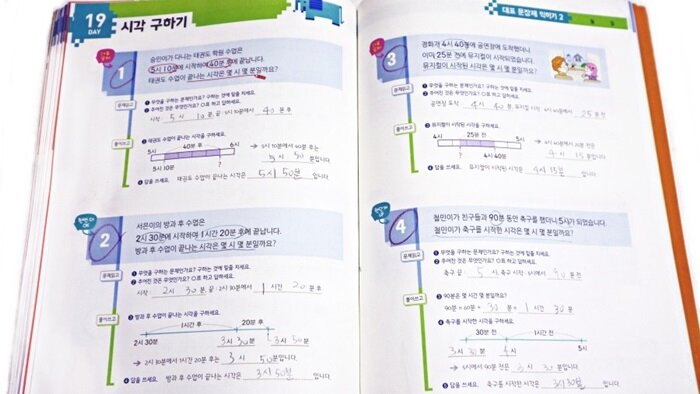 19
DAY
시각 구하기
1
승민이가 다니는 태권도 학원 수업은
5시 10분에 시작하여 40분 후에 끝납니다.
태권도 수업이 끝나는 시각은 몇 시 몇 분일까요?
문제읽고
① 무엇을 구하는 문제인가요? 구하는 것에 밑줄 치세요.
② 주어진 것은 무엇인가요? ○표 하고 답하세요.
시작 : 5시 10분, 끝 : 5시 10분에서 40분 후
풀이쓰고
③ 태권도 수업이 끝나는 시각을 구하세요.
5시 40분 후 6시
5시 10분 ?
→ 5시 10분에서 40분 후는
5시 50분입니다.
④ 답을 쓰세요. 태권도 수업이 끝나는 시각은 5시 50분입니다.
2
서은이의 방과 후 수업은
2시 30분에 시작하여 1시간 20분 후에 끝납니다.
방과 후 수업이 끝나는 시각은 몇 시 몇 분일까요?
문제읽고
① 무엇을 구하는 문제인가요? 구하는 것에 밑줄 치세요.
② 주어진 것은 무엇인가요? ○표 하고 답하세요.
시작 : 2시 30분, 끝 : 2시 30분에서 1시간 20분 후
풀이쓰고
③ 방과 후 수업이 끝나는 시각을 구하세요.
1시간 후 20분 후
2시 30분 3시 30분 3시 50분
→ 2시 30분에서 1시간 20분 후는 3시 50분입니다.
④ 답을 쓰세요. 방과 후 수업이 끝나는 시각은 3시 50분입니다.
대표 문장제 익히기 2
3
경화가 4시 40분에 공연장에 도착했더니
이미 25분 전에 뮤지컬이 시작되었습니다.
뮤지컬이 시작된 시각은 몇 시 몇 분일까요?
문제읽고
① 무엇을 구하는 문제인가요? 구하는 것에 밑줄 치세요.
② 주어진 것은 무엇인가요? ○표 하고 답하세요.
공연장 도착 : 4시 40분, 뮤지컬 시작 : 4시 40분에서 25분 전
풀이쓰고
③ 뮤지컬이 시작된 시각을 구하세요.
4시 25분 전 5시
? 4시 40분
→ 4시 40분에서 25분 전은
4시 15분입니다.
④ 답을 쓰세요. 뮤지컬이 시작된 시각은 4시 15분입니다.
4
철민이가 친구들과 90분 동안 축구를 했더니 5시가 되었습니다.
철민이가 축구를 시작한 시각은 몇 시 몇 분일까요?
문제읽고
① 무엇을 구하는 문제인가요? 구하는 것에 밑줄 치세요.
② 주어진 것은 무엇인가요? ○표 하고 답하세요.
축구 끝 : 5시, 축구 시작 : 5시에서 90분 전
풀이쓰고
③ 90분은 몇 시간 몇 분일까요?
90분 = 60분 + 30분 = 1시간 30분
④ 축구를 시작한 시각을 구하세요.
30분 전 1시간 전
3시 30분 4시 5시
→ 5시에서 90분 전은 3시 30분입니다.
⑤ 답을 쓰세요. 축구를 시작한 시각은 3시 30분입니다.